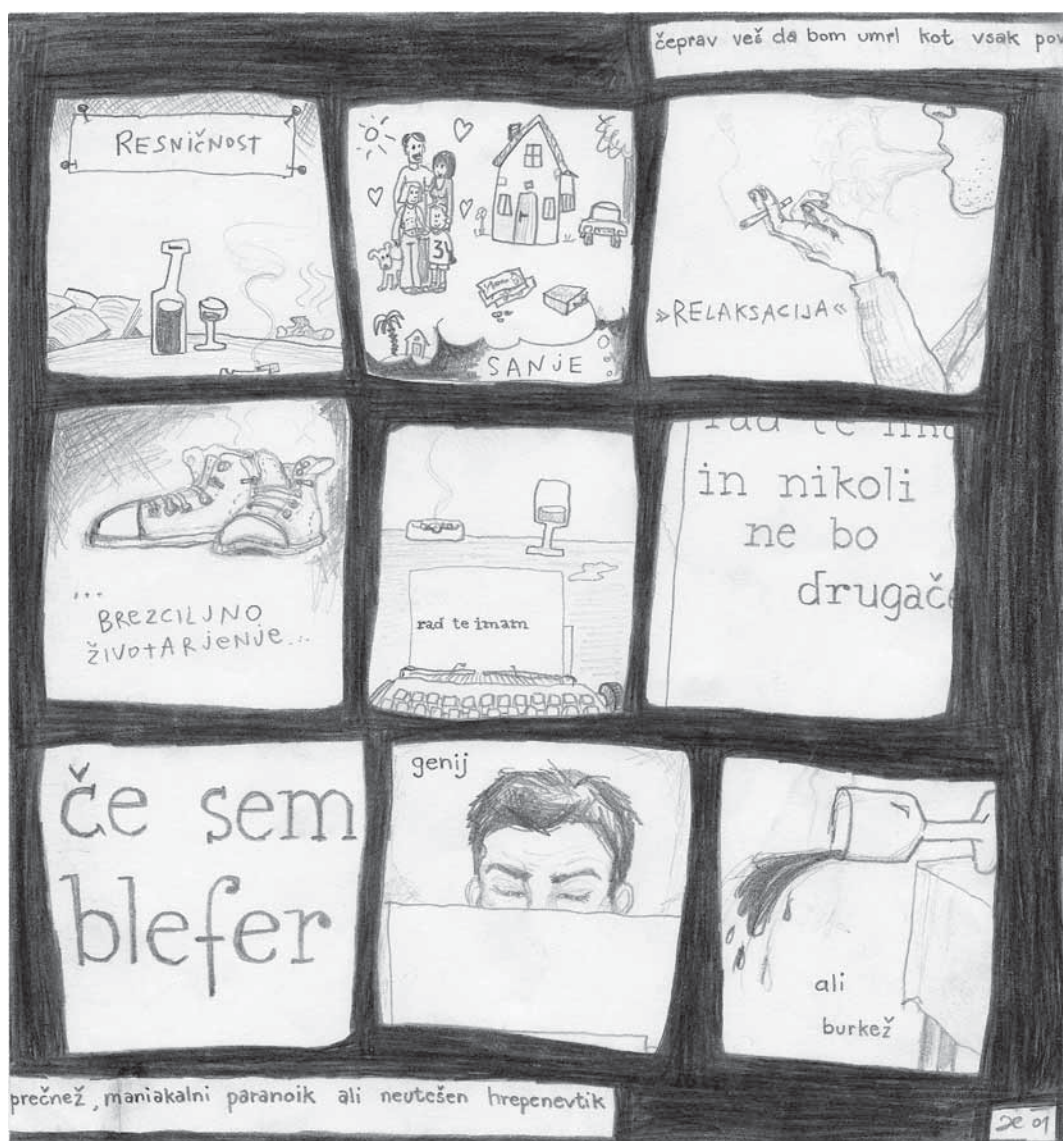 čeprav veš da bom umrl kot vsak pov
RESNIČNOST
3
SANJE
»RELAKSACIJA«
...
BREZCILJNO
ŽIVOTARJENJE...
rad te imam
rad te
in nikoli
ne bo
drugače
če sem
blefer
genij
ali
burkež
prečnež, maniakalni paranoik ali neutešen hrepenevtik
01